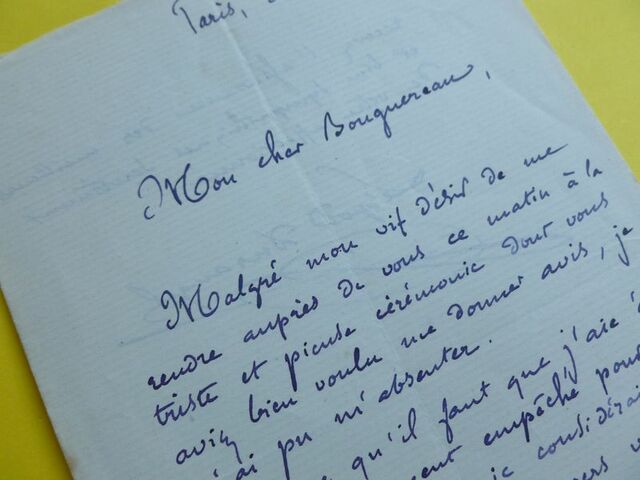 Paris,
Mon cher Bouguereau,
Malgré mon vif désir de me
rendre auprès de vous ce matin à la
triste et pieuse cérémonie dont vous
aviez bien voulu me donner avis, je
n'ai pu m'absenter.
qu'il faut que j'aie
empêché pour
considéra